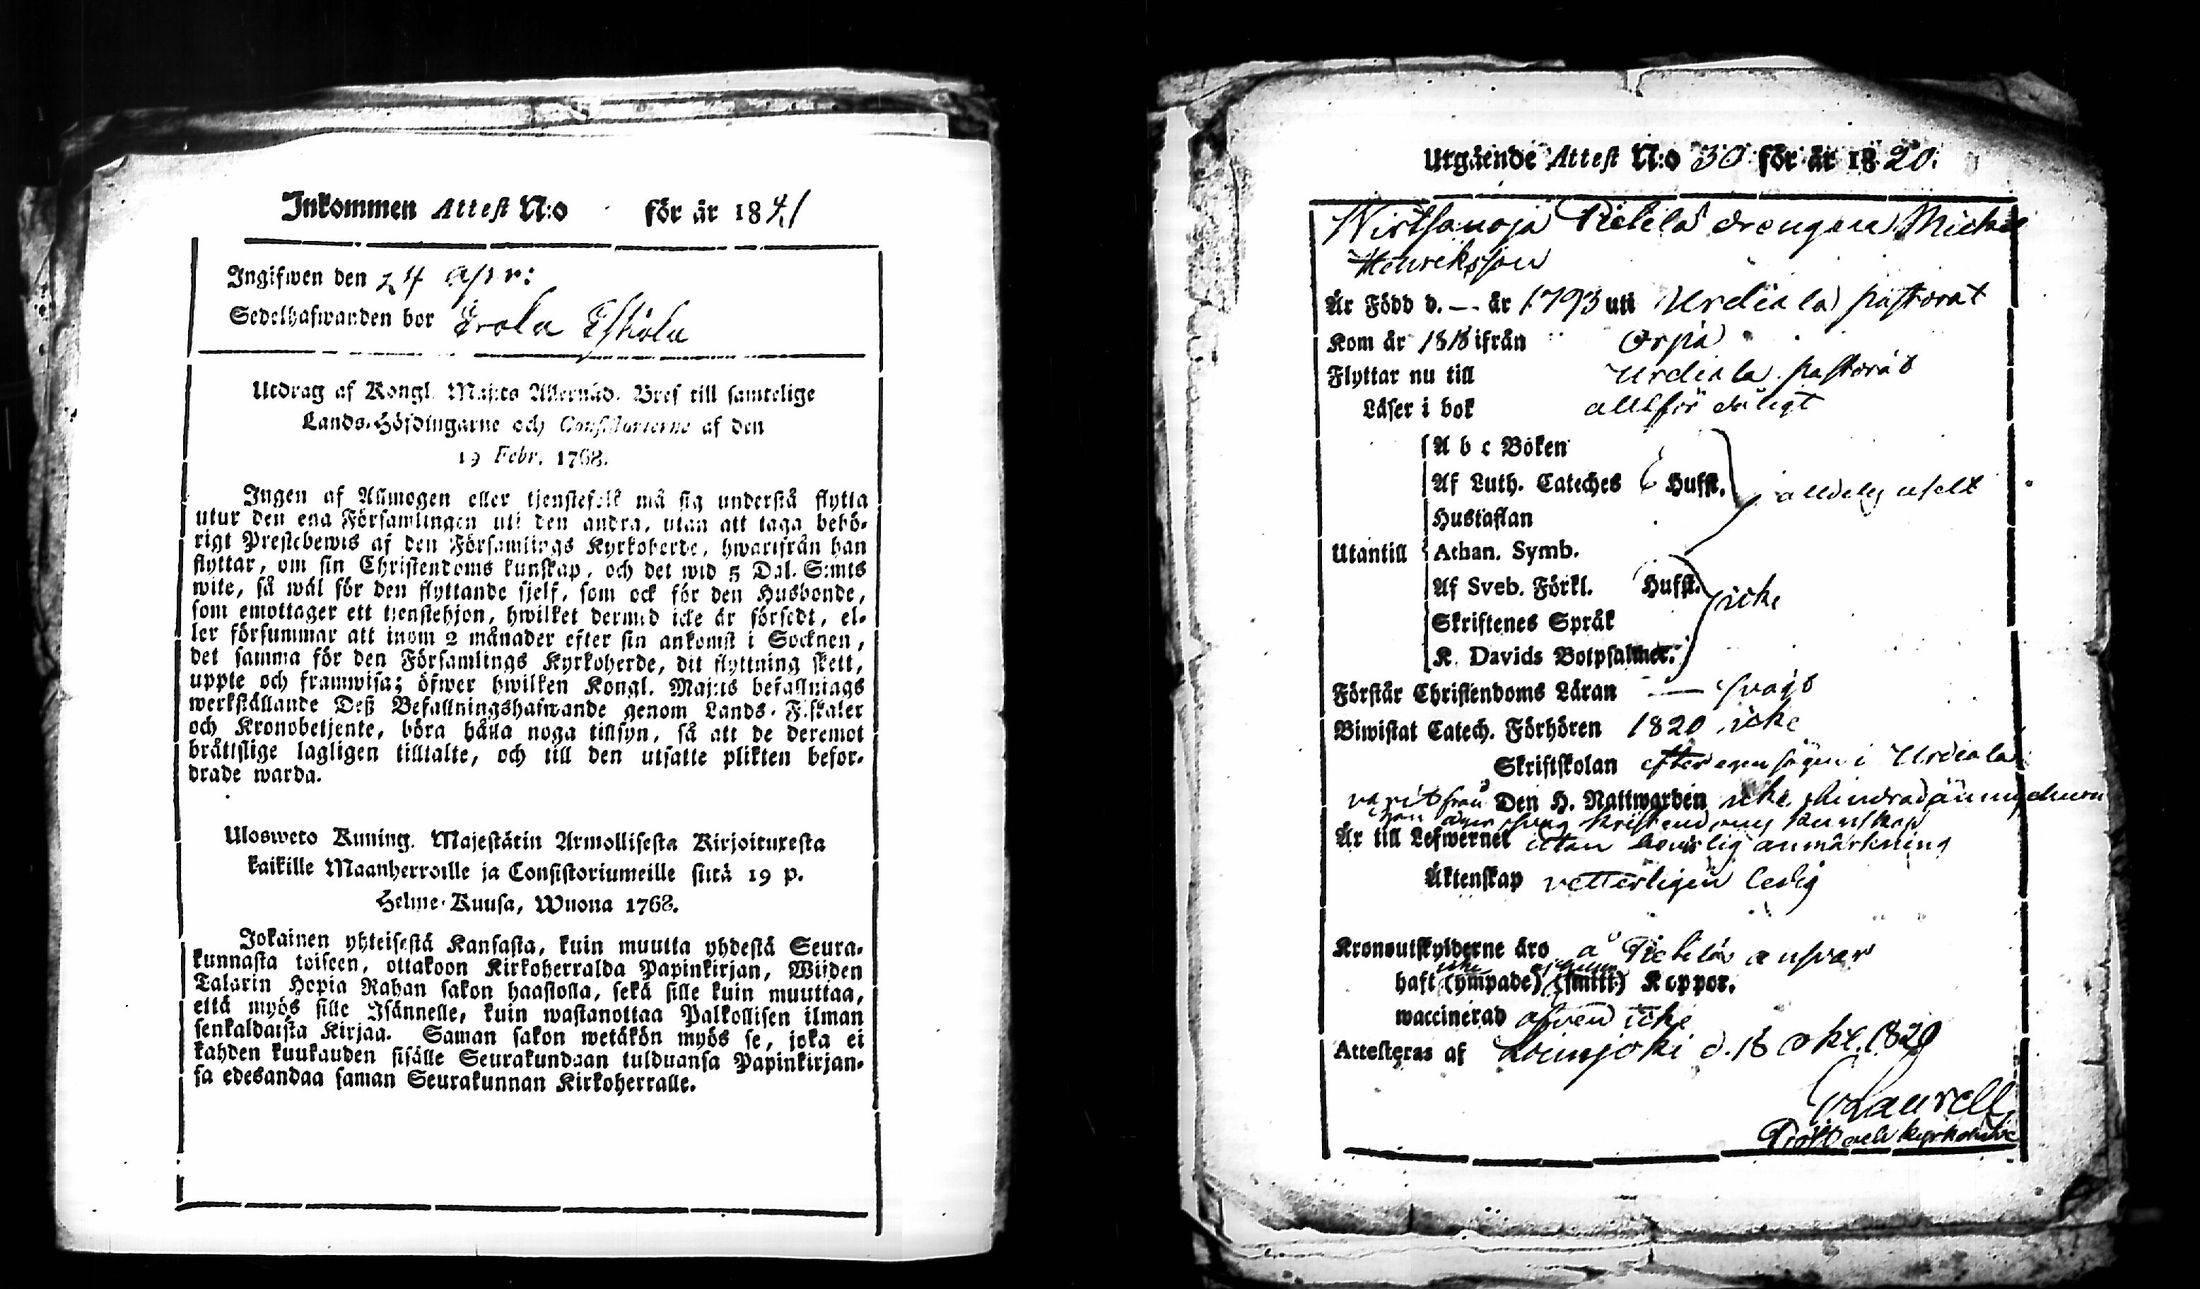 Inkommen Attest N:o för år 1841
Ingifwen den 24 apr:
Sedelhafwanden bor Erola Eskola
Utdrag af Kongl. Maj:ts Allernåd. Bref till samtelige
Lands-Höfdingarne och Consistorierne af den
19 Febr. 1768.
Ingen af Allmogen eller tjenstefolk må sig understå flytta
utur den ena Församlingen uti den andra, utan att taga behö-
rigt Prestebewis af den Församlings Kyrkoherde, hwarifrån han
flyttar, om sin Christendoms kunskap, och det wid 5 Dal. S:mts
wite, så wäl för den flyttande sjelf, som ock för den Husbonde,
som emottager ett tjenstehjon, hwilket dermed icke är försedt, el-
ler försummar att inom 2 månader efter sin ankomst i Socknen,
det samma för den Församlings Kyrkoherde, dit flyttning skett,
uppte och framwisa; öfwer hwilken Kongl. Maj:ts befallnings
werkställande Deß Befallningshafwande genom Lands-Fiskaler
och Kronobetjente, böra hålla noga tillsyn, så att de deremot
bråttslige lagligen tilltalte, och till den utsatte plikten befor-
drade warda.
Ulosweto Kuning. Majestätin Armollisesta Kirjoituxesta
kaikille Maanherroille ja Consistoriumeille siitä 19 p.
Helme-Kuusa, Wuona 1768.
Jokainen yhteisestä Kansasta, kuin muutta yhdestä Seura-
kunnasta toiseen, ottakoon Kirkoherralda Papinkirjan, Wiiden
Talarin Hopia Rahan sakon haastolla, sekä sille kuin muuttaa,
että myös sille Isännelle, kuin wastanottaa Palkollisen ilman
senkaldaista Kirjaa. Saman sakon wetäkön myös se, joka ei
kahden kuukauden sisälle Seurakundaan tulduansa Papinkirjan-
sa edesandaa saman Seurakunnan Kirkoherralle.
Utgående Attest N:o 30 för år 1820.
Wirtsanoja Pietilä drengen Michel
Henriksson
Är Född d. — år 1793 uti Urdiala pastorat
Kom år 1818 ifrån Orpä
Flyttar nu till Urdiala pastorat
Läser i bok alltför dåligt
A b c Boken
Af Luth. Cateches Husst. alldeles uselt
Hustaflan
Utantill Athan. Symb.
Af Sveb. Förkl. Husst. icke
Skriftenes Språk
K. Davids Botpsalmer.
Förstår Christendoms Läran — svagt
Biwistat Catech. Förhören 1820 icke
Skriftskolan efter egen sägen i Urdiala
varit från Den H. Nattwarden icke
svag kristendoms kunskap
Är till Lefwernet utan anmärkning
Äktenskap vetterligen ledig
Kronoutskylderne äro å Pietilä ansvar
haft icke (ympade) (smitt:) Koppor.
waccinerad äfven icke
Attesteras af Loimjoki d. 18 okt. 1820
Laurell
Prost och kyrkoherde